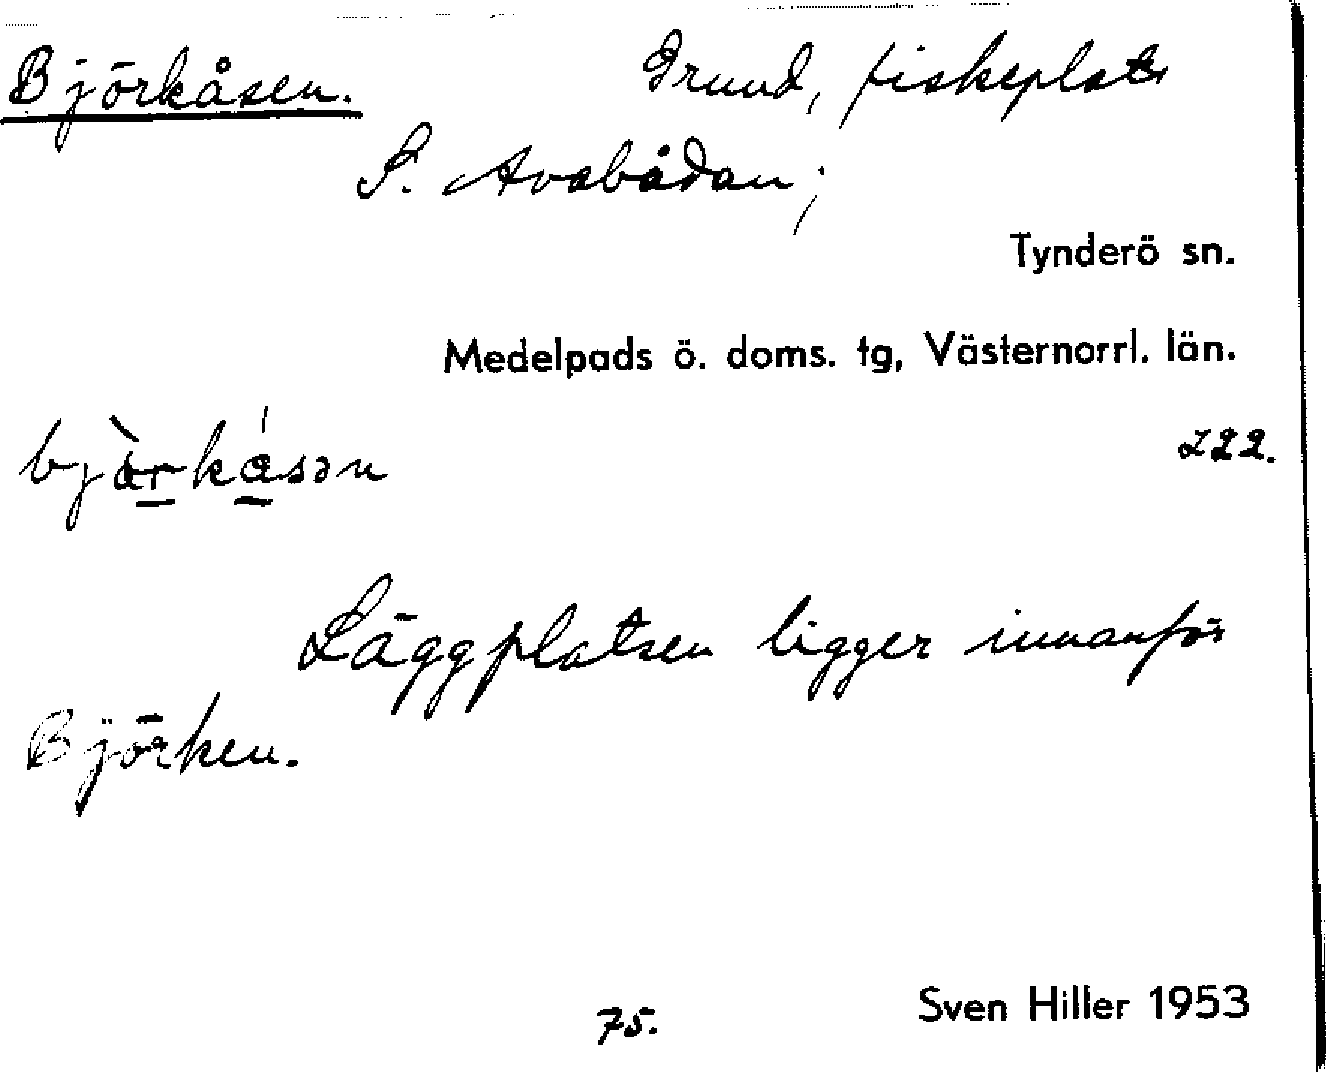 Björkåsen. Grund, fiskeplats
S. Avabådan;
Tynderö sn.
Medelpads ö. doms. tg, Västernorrl. län.
222.
Läggplatsen ligger innanför
Björken.
75. Sven Hiller 1953